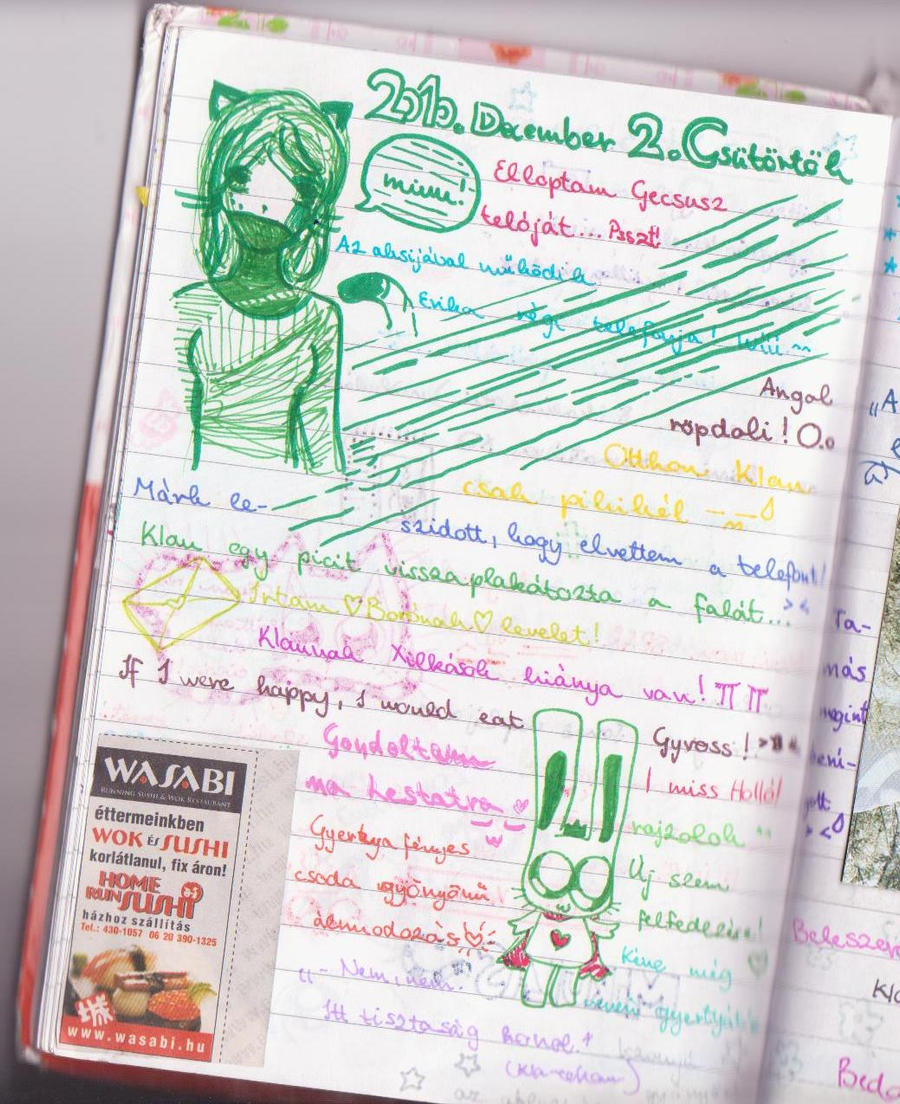 2010. December 2. Csütörtök
miuu!
Elloptam Gecsusz
telóját... Psszt!
Az aksijával működik
Erika régi telefonja! Wiii ^^
Angol
röpdoli! O.o
Otthon Klau
csak pihikél
Márk le-
szidott, hogy elvettem a telefont!
Klau egy picit visszaplakátozta a falát... ><
Írtam ♡ Borónak ♡ levelet!
Klaunak Xilkásók hiánya van! TT TT
If I were happy, I would eat
Gyvoss!
Gondoltam
ma Lestatra
I miss Holló!
rajzolok ^^
Gyertya fényes
csoda gyönyörű
álmodozás
Új szem
felfedezése!
Kéne még
venni gyertyát
„- Nem, nem.
Itt tisztaság
WASABI
RUNNING SUSHI & WOK RESTAURANT
éttermeinkben
WOK ÉS SUSHI
korlátlanul, fix áron!
HOME
RUN SUSHI
házhoz szállítás
Tel.: 430-1057 06 20 390-1325
www.wasabi.hu
„A
Ta-
más
megint
Bele